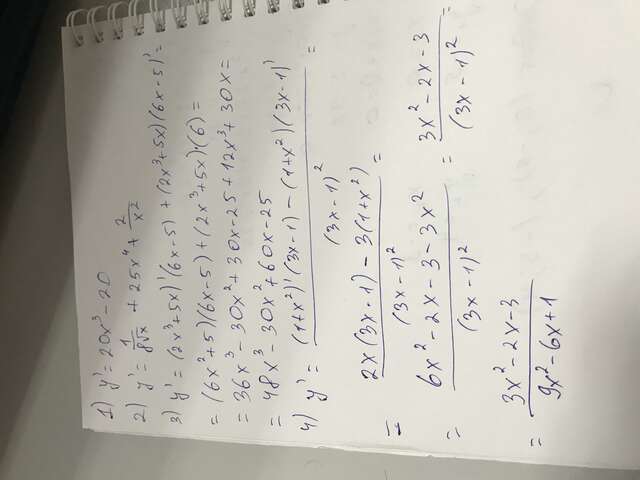 1) y' = 20x³ - 20
2) y' = 1/(8√x) + 25x⁴ + 2/x²
3) y' = (2x³+5x)'(6x-5) + (2x³+5x)(6x-5)' =
= (6x²+5)(6x-5) + (2x³+5x)·(6) =
= 36x³ - 30x² + 30x - 25 + 12x³ + 30x =
= 48x³ - 30x² + 60x - 25
4) y' = ((1+x²)'(3x-1) - (1+x²)(3x-1)')/(3x-1)² =
= (2x(3x-1) - 3(1+x²))/(3x-1)² =
= (6x² - 2x - 3 - 3x²)/(3x-1)² = (3x² - 2x - 3)/(3x-1)²
= (3x² - 2x - 3)/(9x² - 6x + 1)